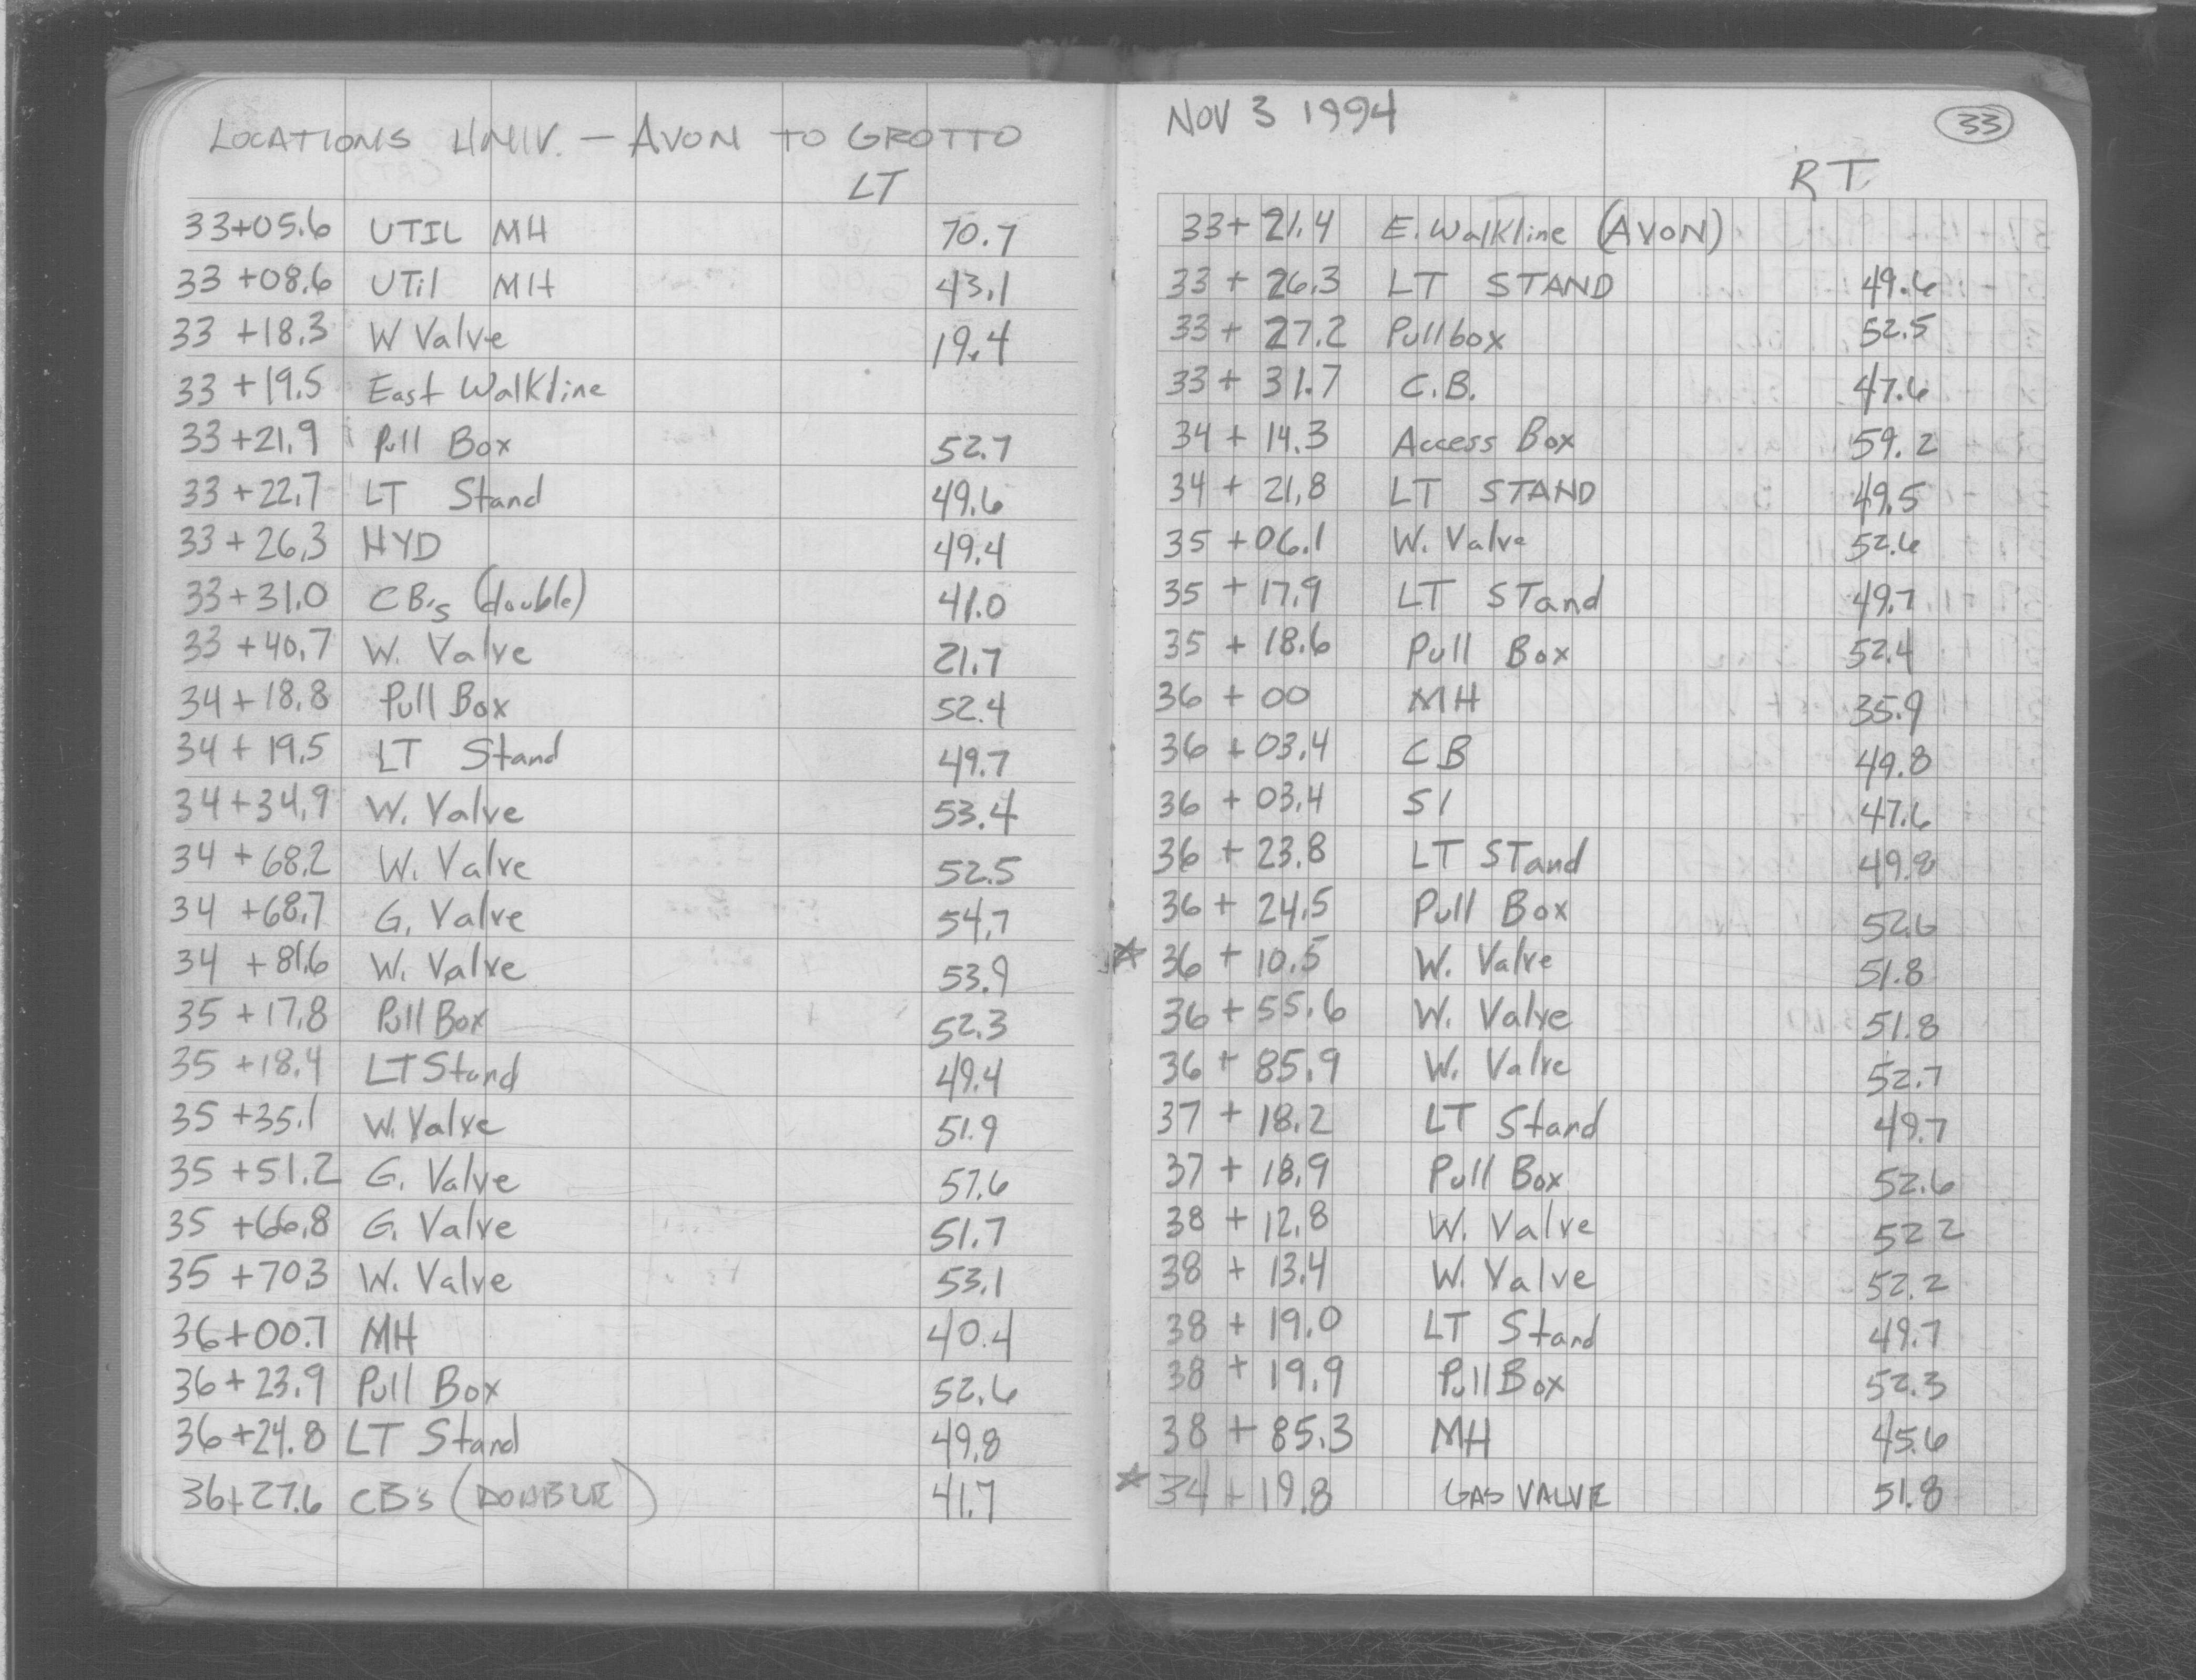 LOCATIONS UNIV. — AVON TO GROTTO
LT
33+05.6 UTIL MH 70.7
33+08.6 UTil MH 43.1
33+18.3 W Valve 19.4
33+19.5 East Walkline
33+21.9 Pull Box 52.7
33+22.7 LT Stand 49.6
33+26.3 HYD 49.4
33+31.0 CB's (double) 41.0
33+40.7 W. Valve 21.7
34+18.8 Pull Box 52.4
34+19.5 LT Stand 49.7
34+34.9 W. Valve 53.4
34+68.2 W. Valve 52.5
34+68.7 G. Valve 54.7
34+81.6 W. Valve 53.9
35+17.8 Pull Box 52.3
35+18.4 LT Stand 49.4
35+35.1 W. Valve 51.9
35+51.2 G. Valve 57.6
35+66.8 G. Valve 51.7
35+70.3 W. Valve 53.1
36+00.7 MH 40.4
36+23.9 Pull Box 52.6
36+24.8 LT Stand 49.8
36+27.6 CB's (DOUBLE) 41.7
NOV 3 1994 33
RT
33+21.4 E. Walkline (AVON)
33+26.3 LT STAND 49.6
33+27.2 Pullbox 52.5
33+31.7 C.B. 47.6
34+14.3 Access Box 59.2
34+21.8 LT STAND 49.5
35+06.1 W. Valve 52.6
35+17.9 LT STand 49.7
35+18.6 Pull Box 52.4
36+00 MH 35.9
36+03.4 CB 49.8
36+03.4 SI 47.6
36+23.8 LT STand 49.8
36+24.5 Pull Box 52.6
☆ 36+10.5 W. Valve 51.8
36+55.6 W. Valve 51.8
36+85.9 W. Valve 52.7
37+18.2 LT Stand 49.7
37+18.9 Pull Box 52.6
38+12.8 W. Valve 52 2
38+13.4 W. Valve 52.2
38+19.0 LT Stand 49.7
38+19.9 Pull Box 52.3
38+85.3 MH 45.6
☆ 34+19.8 GAS VALVE 51.8